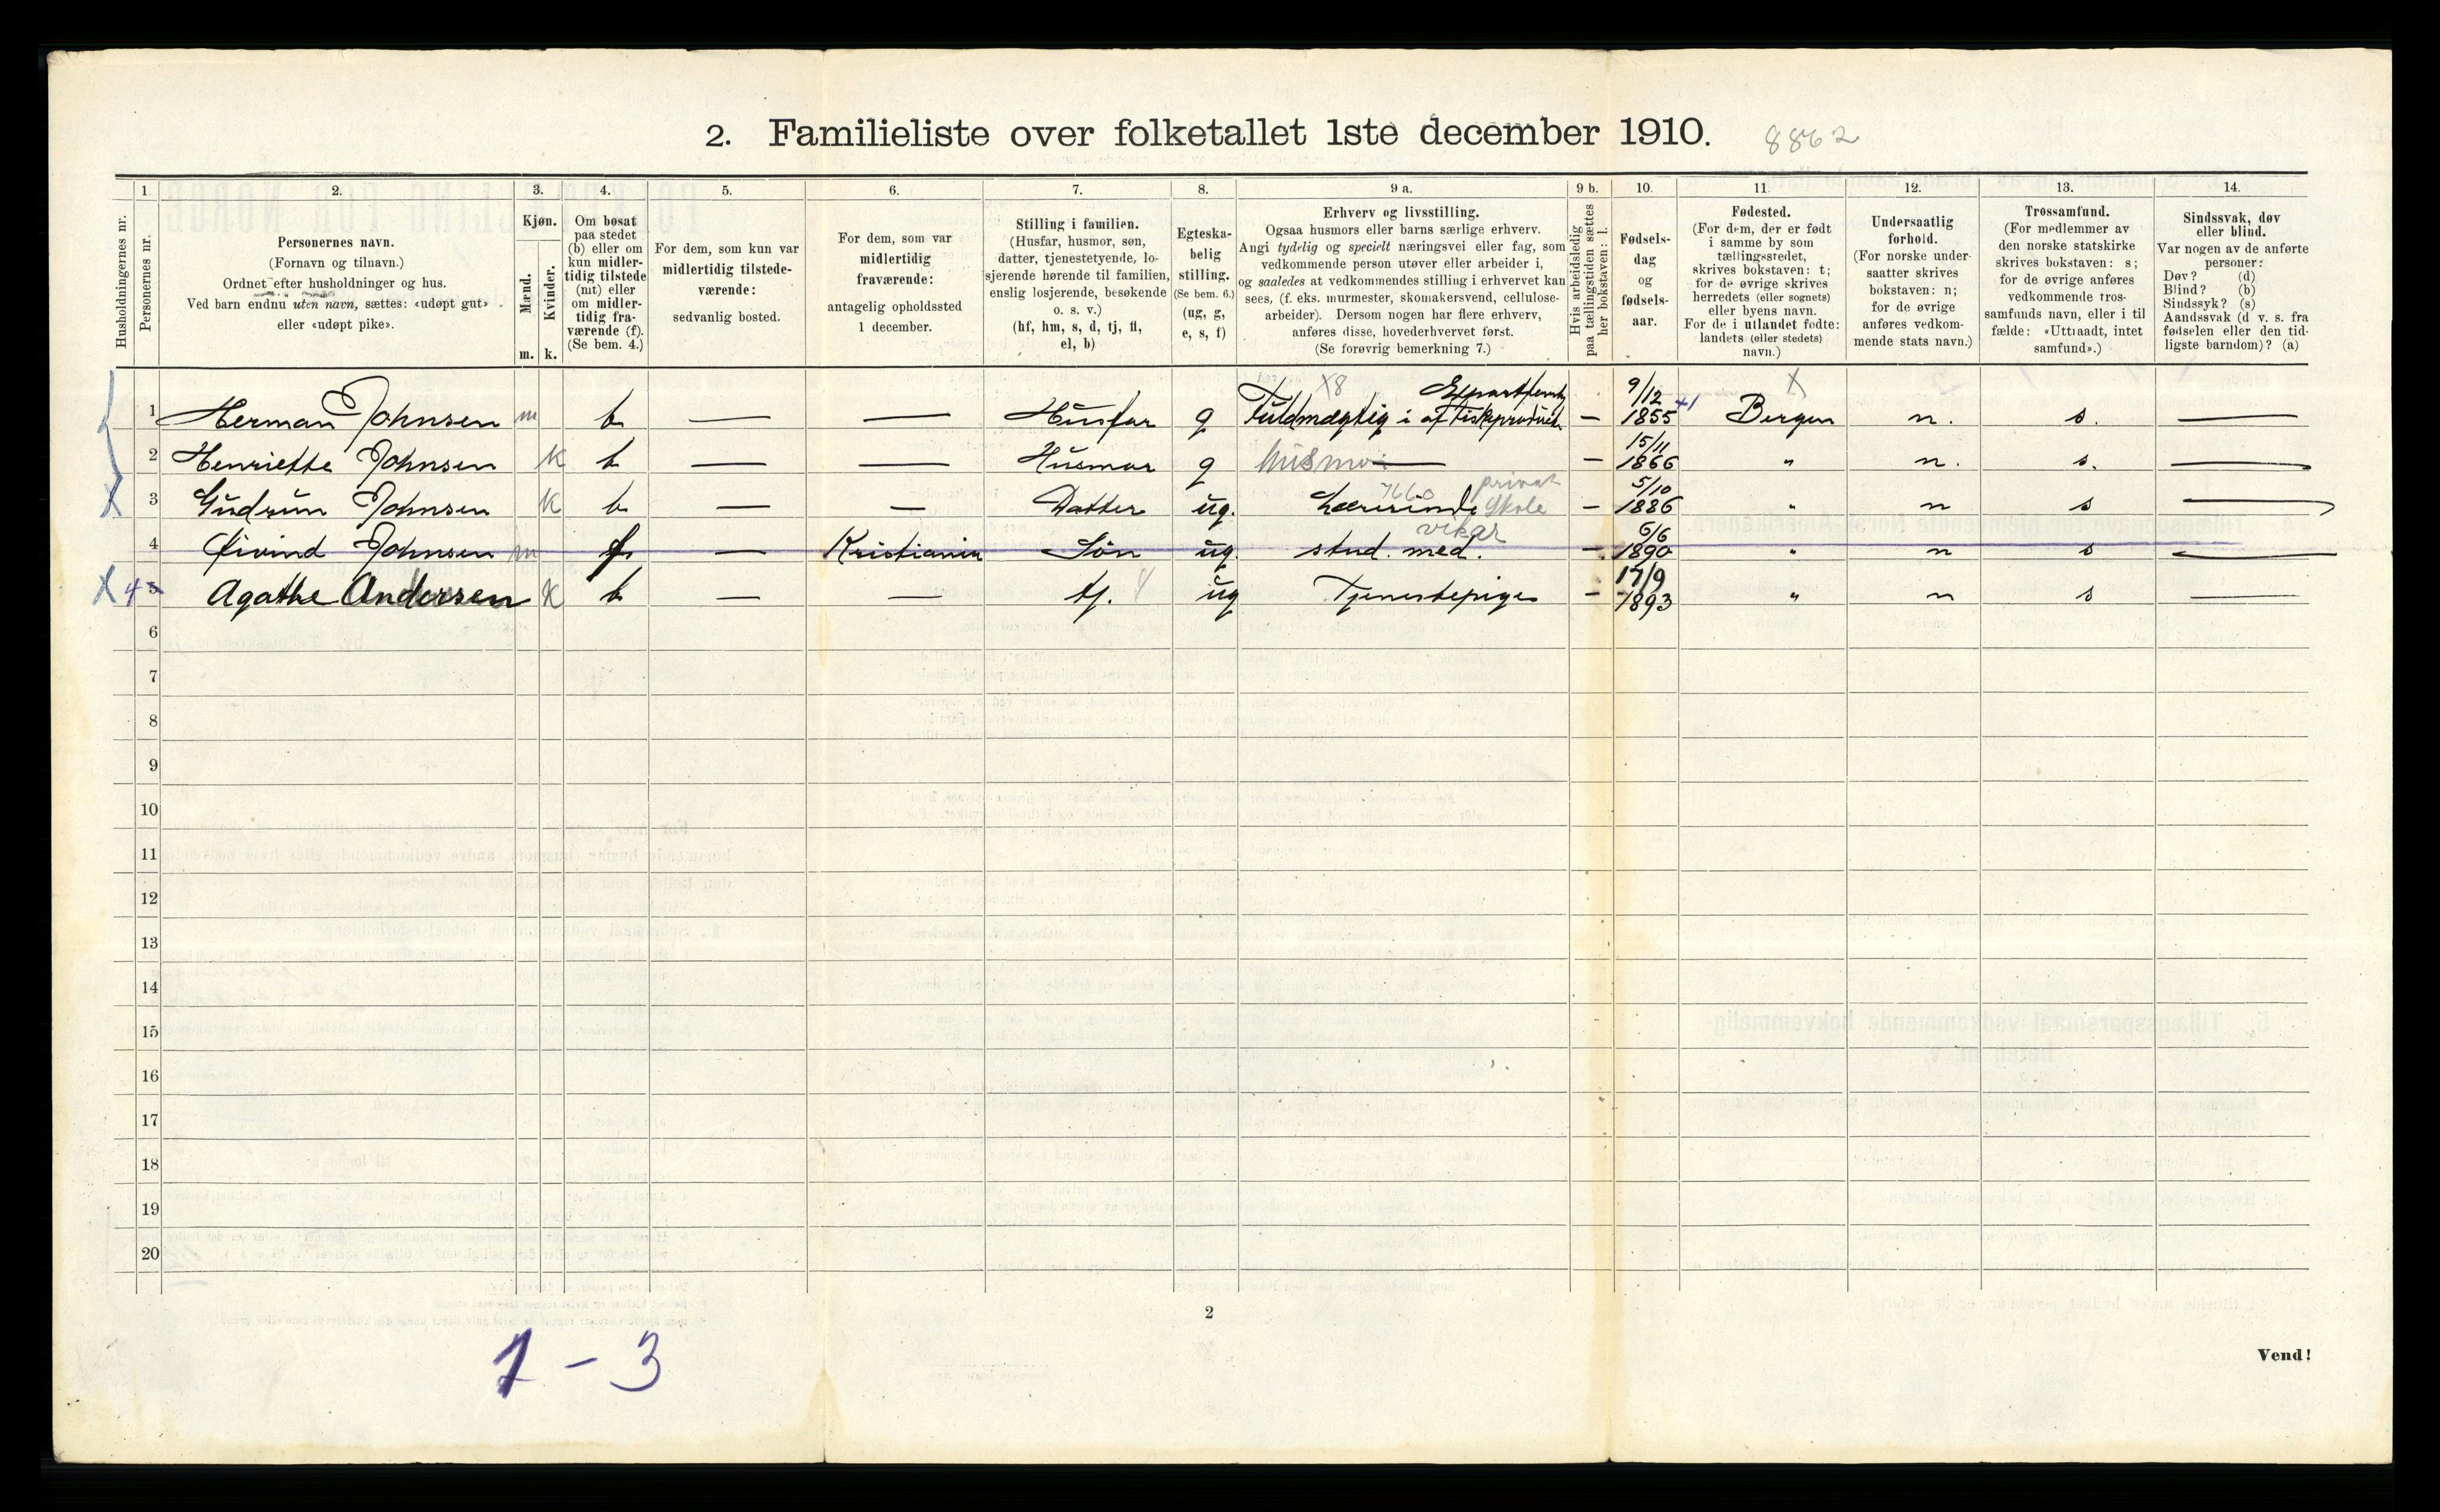 2. Familieliste over folketallet 1ste december 1910. 8862
1. 2. 3. 4. 5. 6. 7. 8. 9 a. 9 b. 10. 11. 12. 13. 14.
Husholdningernes nr.
Personernes nr.
Personernes navn.
(Fornavn og tilnavn.)
Ordnet efter husholdninger og hus.
Ved barn endnu uten navn, sættes: «udøpt gut»
eller «udøpt pike».
Kjøn.
Mænd.
Kvinder.
m. k.
Om bosat
paa stedet
(b) eller om
kun midler-
tidig tilstede
(mt) eller
om midler-
tidig fra-
værende (f).
(Se bem. 4.)
For dem, som kun var
midlertidig tilstede-
værende:
sedvanlig bosted.
For dem, som var
midlertidig
fraværende:
antagelig opholdssted
1 december.
Stilling i familien.
(Husfar, husmor, søn,
datter, tjenestetyende, lo-
sjerende hørende til familien,
enslig losjerende, besøkende
o. s. v.)
(hf, hm, s, d, tj, fl,
el, b)
Egteska-
belig
stilling.
(Se bem. 6.)
(ug, g,
e, s, f)
Erhverv og livsstilling.
Ogsaa husmors eller barns særlige erhverv.
Angi tydelig og specielt næringsvei eller fag, som
vedkommende person utøver eller arbeider i,
og saaledes at vedkommendes stilling i erhvervet kan
sees, (f. eks. murmester, skomakersvend, cellulose-
arbeider). Dersom nogen har flere erhverv,
anføres disse, hovederhvervet først.
(Se forøvrig bemerkning 7.)
Hvis arbeidsledig
paa tællingstiden sættes
her bokstaven: l.
Fødsels-
dag
og
fødsels-
aar.
Fødested.
(For dem, der er født
i samme by som
tællingsstedet,
skrives bokstaven: t;
for de øvrige skrives
herredets (eller sognets)
eller byens navn.
For de i utlandet fødte:
landets (eller stedets)
navn.)
Undersaatlig
forhold.
(For norske under-
saatter skrives
bokstaven: n;
for de øvrige
anføres vedkom-
mende stats navn.)
Trossamfund.
(For medlemmer av
den norske statskirke
skrives bokstaven: s;
for de øvrige anføres
vedkommende tros-
samfunds navn, eller i til
fælde: «Uttraadt, intet
samfund».)
Sindssvak, døv
eller blind.
Var nogen av de anførte
personer:
Døv? (d)
Blind? (b)
Sindssyk? (s)
Aandssvak (d. v. s. fra
fødselen eller den tid-
ligste barndom)? (a)
1 Herman Johnsen m b — — Husfar g Fuldmægtig i — 9/12 1855 Bergen n. s. —
2 Henriette Johnsen k b — — Husmor g husmor — 15/11 1866 " n. s. —
3 Gudrun Johnsen k b — — Datter ug. Lærerinde privat Skole vikar — 5/10 1886 " n s —
4 Øivind Johnsen m f — Kristiania Søn ug. stud. med. — 6/6 1890 " n s —
X 4 5 Agathe Andersen k b — — tj. ug Tjenestepige — 17/9 1893 " n s —
6
7
8
9
10
11
12
13
14
15
16
17
18
19
20
2
Vend!
1 - 3